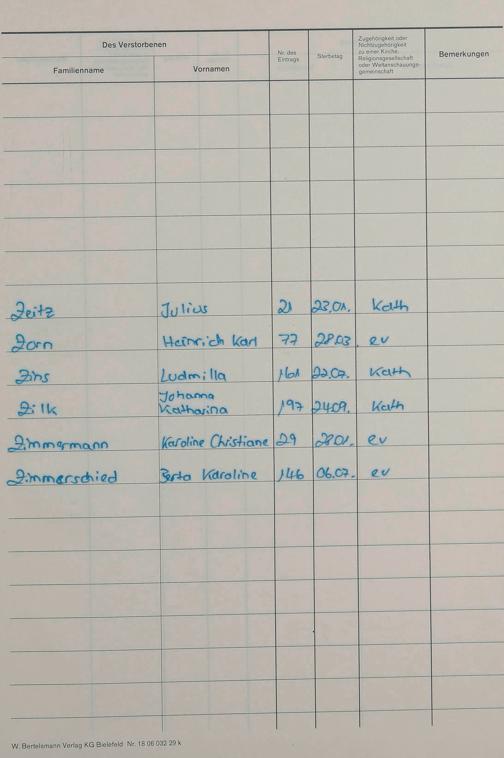 Des Verstorbenen
Familienname
Vornamen
Nr. des
Eintrags
Sterbetag
Zugehörigkeit oder
Nichtzugehörigkeit
zu einer Kirche,
Religionsgesellschaft
oder Weltanschauungs-
gemeinschaft
Bemerkungen
Zeitz Julius 21 23.01. Kath
Zorn Heinrich Karl 77 28.03 ev
Zins Ludmilla 161 22.07. Kath
Zilk Johanna
Katharina 197 24.09. Kath
Zimmermann Karoline Christiane 29 28.01. ev
Zimmerschied Berta Karoline 146 06.07. ev
W. Bertelsmann Verlag KG Bielefeld Nr. 18 06 032 29 k